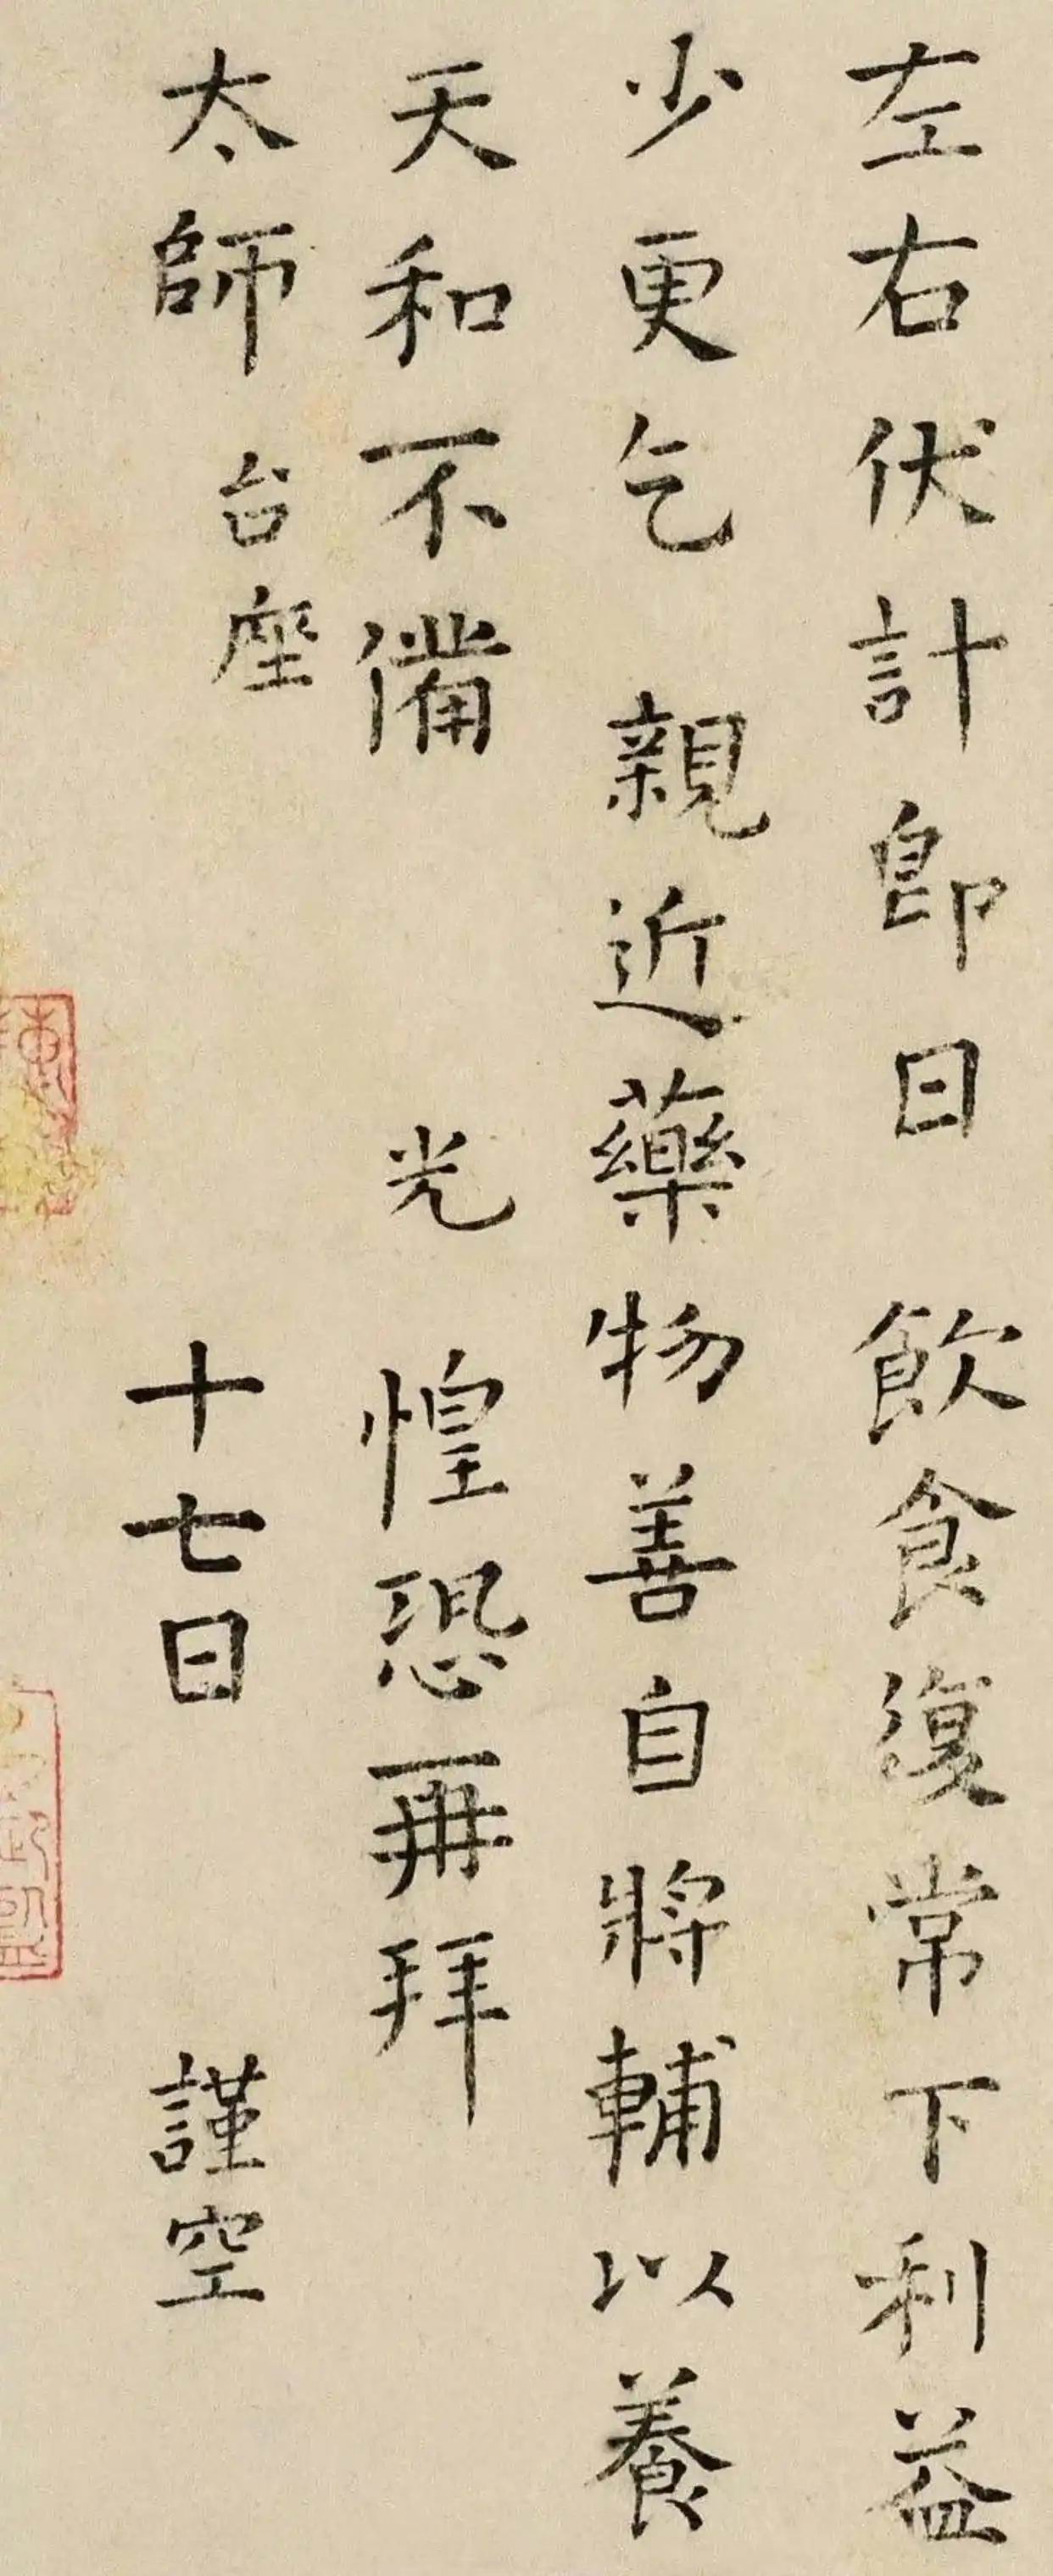 左右伏計即日 飲食復常下利益
少更乞 親近藥物善自將輔以養
天和不備 光 惶恐再拜
太師 台座 十七日 謹空